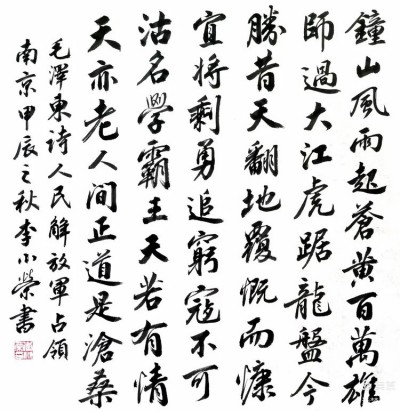 鐘山風雨起蒼黃百萬雄
師過大江虎踞龍盤今
勝昔天翻地覆慨而慷
宜将剩勇追窮寇不可
沽名學霸王天若有情
天亦老人間正道是滄桑
毛澤東詩人民解放軍占領
南京甲辰之秋李小榮書